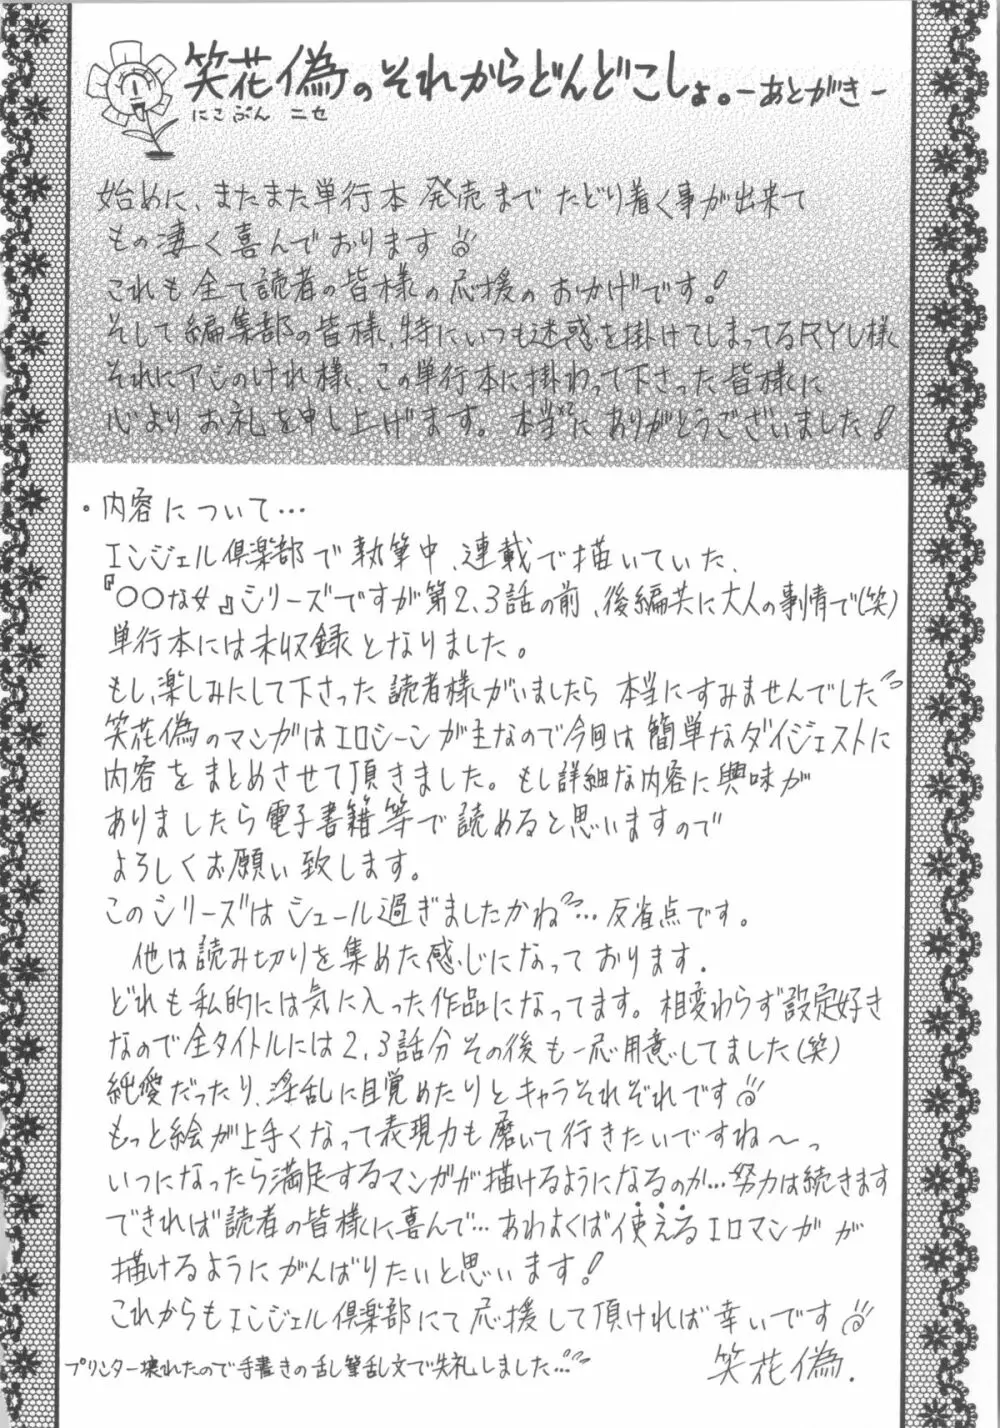 笑花偽のそれからどんどこしょ。-あとがき-
にこぷん ニセ
始めに、またまた単行本 発売まで たどり着く事が出来て
もの凄く喜んでおります
これも全て読者の皆様の応援のおかげです!
そして編集部の皆様、特にいつも迷惑を掛けてしまってるRYU様
それにアシのけれ様、この単行本に掛わって下さった皆様に
心よりお礼を申し上げます。本当にありがとうございました!
。内容について…
エンジェル倶楽部で執筆中、連載で描いていた、
『〇〇な女』シリーズですが第2、3話の前、後編共に大人の事情で(笑)
単行本には未収録となりました。
もし、楽しみにして下さった読者様がいましたら 本当にすみませんでした
笑花偽のマンガはエロシーンが主なので今回は簡単なダイジェストに
内容をまとめさせて頂きました。もし詳細な内容に興味が
ありましたら電子書籍等で読めると思いますので
よろしくお願い致します。
このシリーズはシュール過ぎましたかね…反省点です。
他は読み切りを集めた感じになっております.
どれも私的には気に入った作品になってます。相変わらず設定好き
なので全タイトルには2、3話分その後も一応用意してました(笑)
純愛だったり、淫乱に目覚めたりとキャラそれぞれです
もっと絵が上手くなって表現力も磨いて行きたいですね〜っ
いつになったら満足するマンガが描けるようになるのか…努力は続きます
できれば読者の皆様に喜んで…あわよくば使えるエロマンガが
描けるようにがんばりたいと思います!
これからもエンジェル倶楽部にて応援して頂ければ幸いです
プリンター壊れたので手書きの乱筆乱文で失礼しました…
笑花偽.